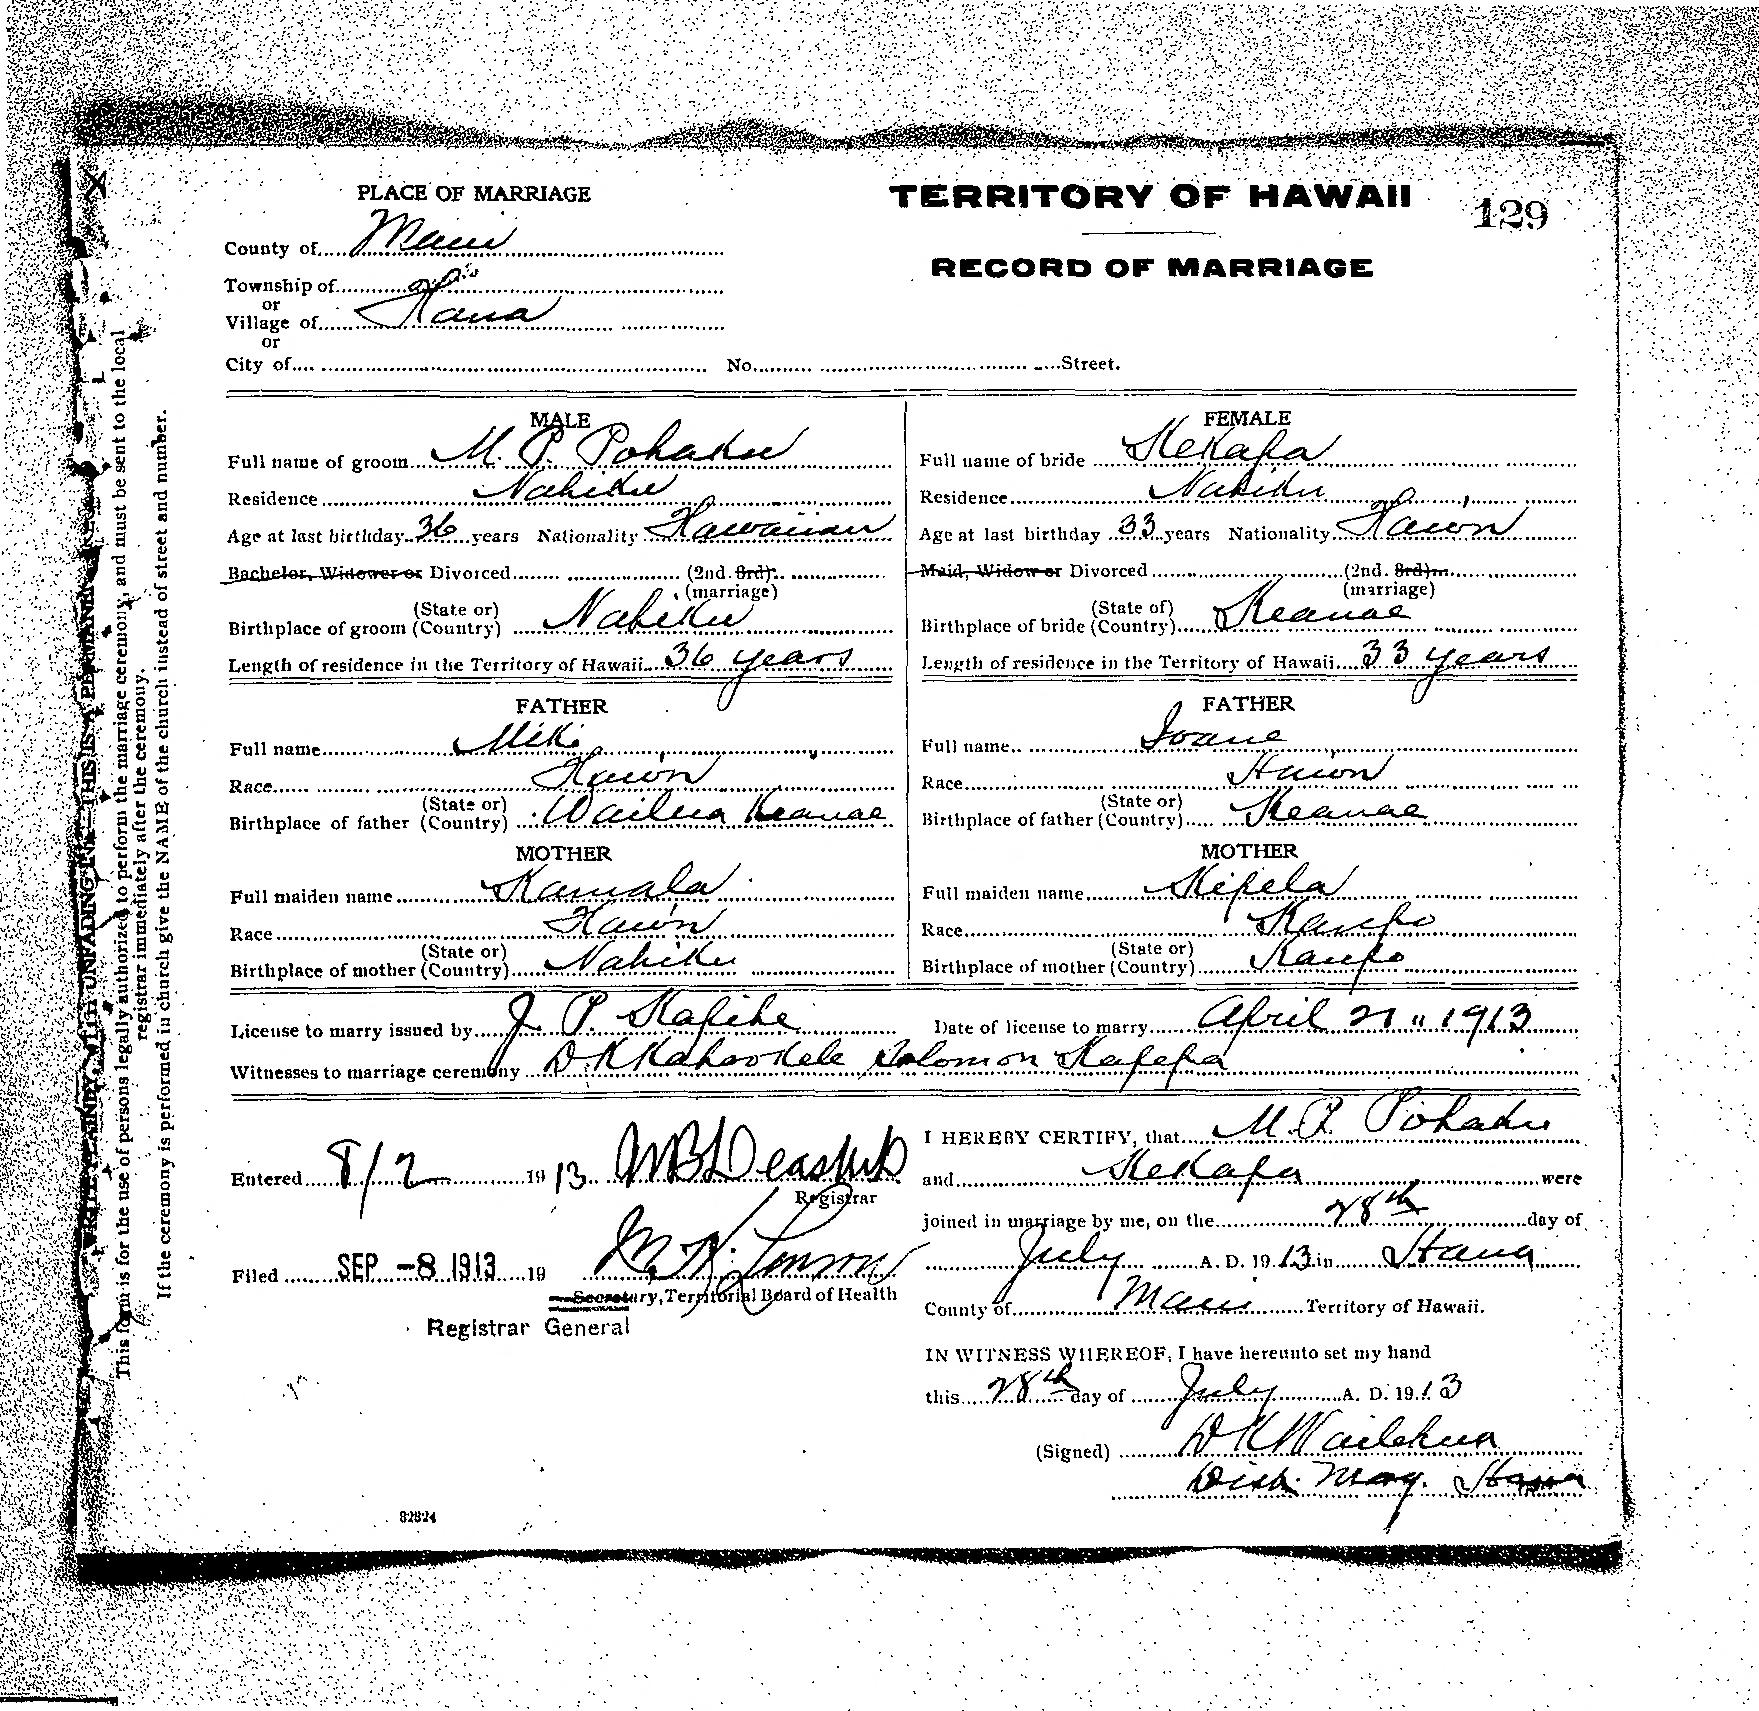 PLACE OF MARRIAGE
TERRITORY OF HAWAII
129
County of Maui
RECORD OF MARRIAGE
Township of
or
Village of Hana
or
City of No. Street.
MALE
Full name of groom M. P. Pohaku
Residence Nahiku
Age at last birthday 36 years Nationality Hawaiian
Bachelor, Widower or Divorced (2nd. 3rd)
(marriage)
Birthplace of groom (State or Country) Nahiku
Length of residence in the Territory of Hawaii 36 years
FEMALE
Full name of bride Kekapa
Residence Nahiku
Age at last birthday 33 years Nationality Hawn
Maid, Widow or Divorced (2nd. 3rd)
(marriage)
Birthplace of bride (State of) (Country) Keanae
Length of residence in the Territory of Hawaii 33 years
FATHER
Full name Miki
Race Hawn
Birthplace of father (State or Country) Wailua Keanae
MOTHER
Full maiden name Kamala
Race Hawn
Birthplace of mother (State or Country) Nahiku
FATHER
Full name Ioane
Race Hawn
Birthplace of father (State or) (Country) Keanae
MOTHER
Full maiden name Kipela
Race Kaupo
Birthplace of mother (State or) (Country) Kaupo
License to marry issued by J. P. Kapihe Date of license to marry April 21" 1913
Witnesses to marriage ceremony D. K. Kahookele Solomon Kapepa
Entered 8/2 1913
Registrar
Filed SEP -8 1913 19
Secretary, Territorial Board of Health
Registrar General
I HEREBY CERTIFY, that M. P. Pohaku
and Kekapa were
joined in marriage by me, on the 28th day of
July A. D. 1913 in Hana
County of Maui Territory of Hawaii.
IN WITNESS WHEREOF, I have hereunto set my hand
this 28th day of July A. D. 1913
(Signed) D K Wailehua
Dist. Mag. Hana
82824
WRITE PLAINLY, WITH UNFADING INK—THIS IS A PERMANENT
This form is for the use of persons legally authorized to perform the marriage ceremony, and must be sent to the local
registrar immediately after the ceremony.
If the ceremony is performed in church give the NAME of the church instead of street and number.